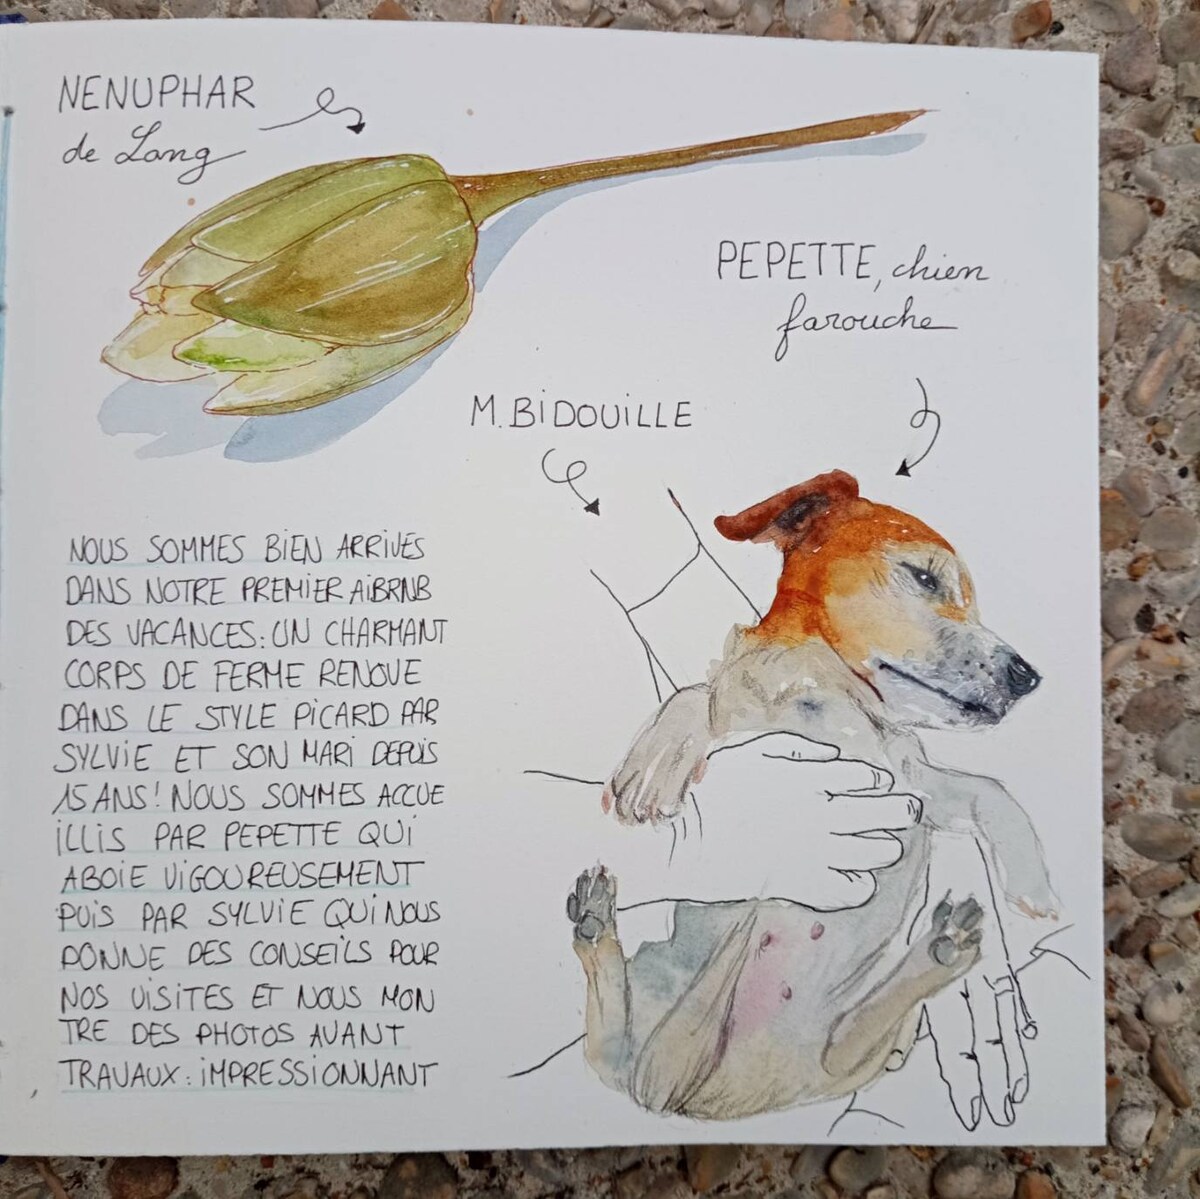 NENUPHAR
de Long
PEPETTE, chien
farouche
M. BiDOUiLLE
NOUS SOMMES BiEN ARRIVES
DANS NOTRE PREMIER AiBRNB
DES VACANCES : UN CHARMANT
CORPS DE FERME RENOVE
DANS LE STYLE PiCARD PAR
SYLViE ET SON MARi DEPUiS
15 ANS ! NOUS SOMMES ACCUE
iLLiS PAR PEPETTE QUi
ABOiE ViGOUREUSEMENT
PUiS PAR SYLVIE QUi NOUS
DONNE DES CONSEiLS POUR
NOS ViSiTES ET NOUS MON
TRE DES PHOTOS AVANT
TRAVAUX : iMPRESSiONNANT